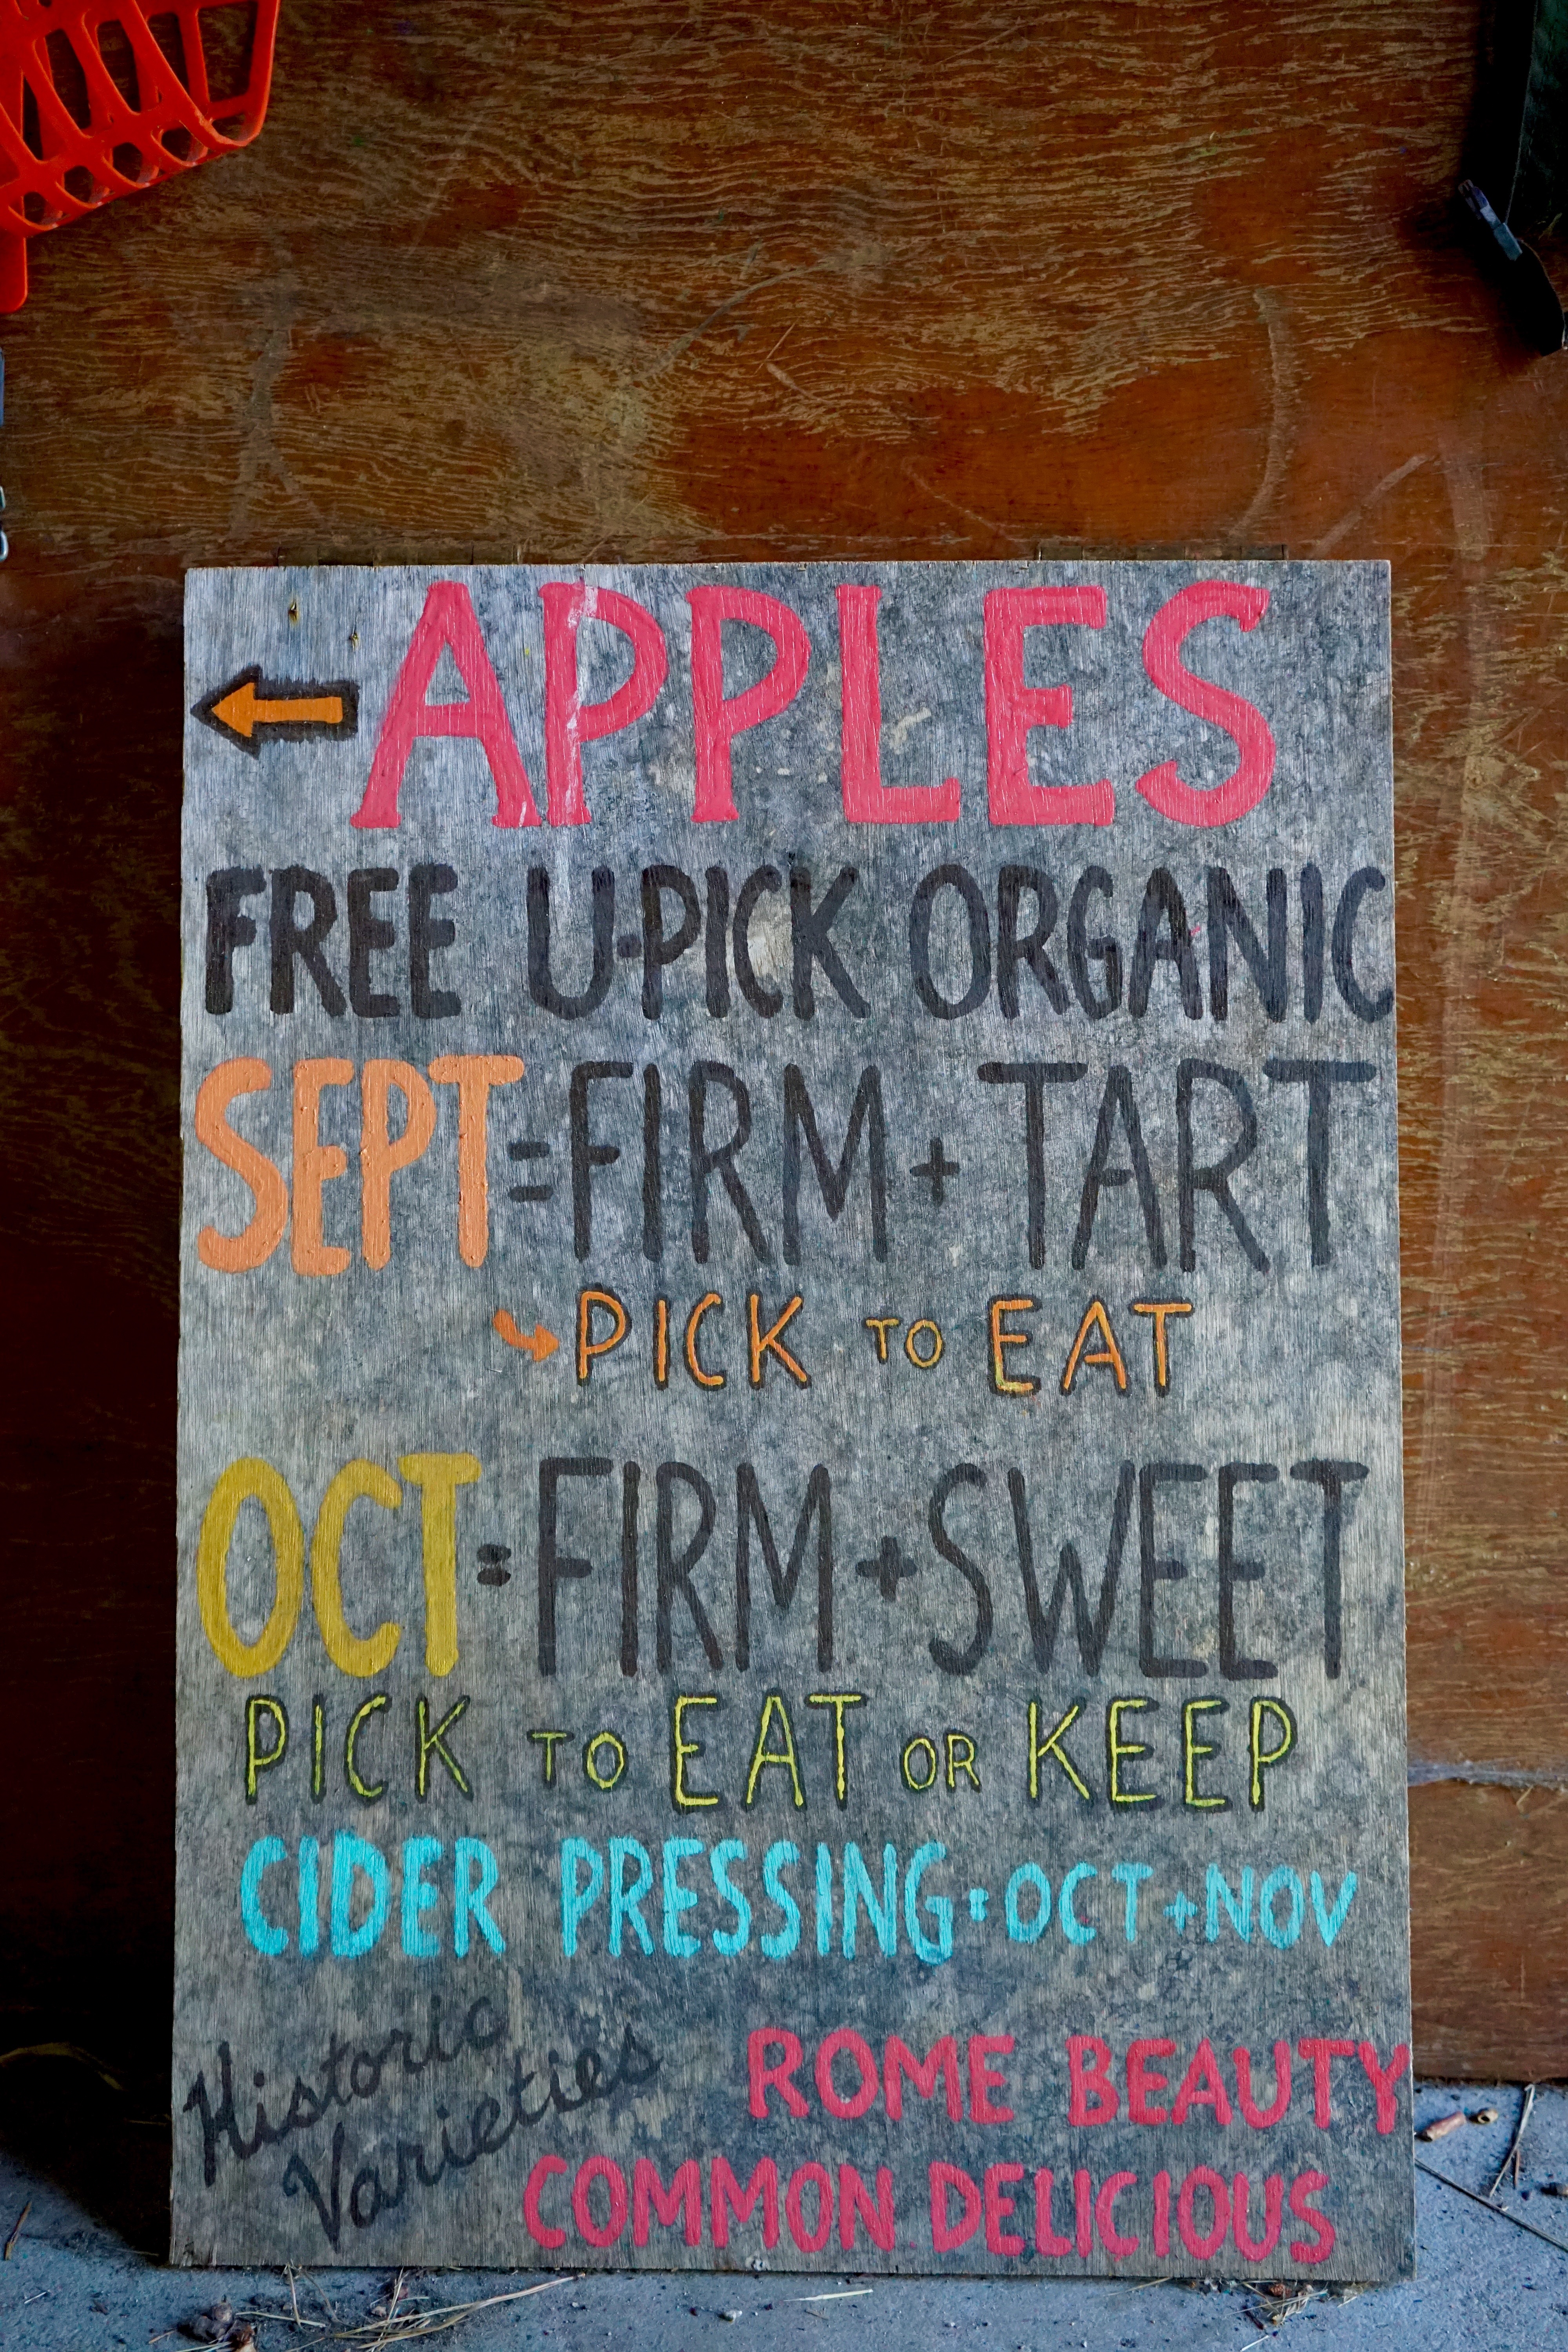 ← APPLES
FREE U-PICK ORGANIC
SEPT = FIRM + TART
↪ PICK TO EAT
OCT = FIRM + SWEET
PICK TO EAT OR KEEP
CIDER PRESSING: OCT + NOV
Historic
Varieties
ROME BEAUTY
COMMON DELICIOUS